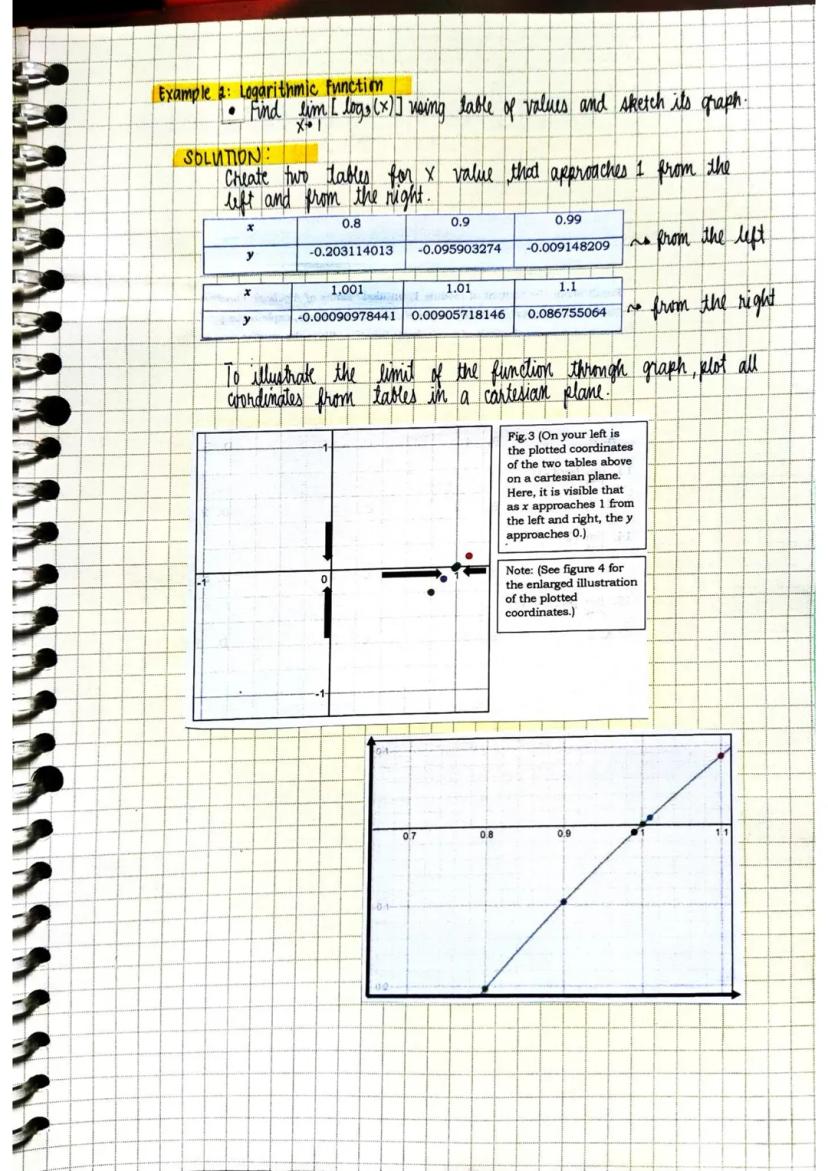 Example 2: Logarithmic Function
• Find lim [log₃(x)] using table of values and sketch its graph.
x→1
SOLUTION:
Create two tables for x value that approaches 1 from the
left and from the right.
x 0.8 0.9 0.99
y -0.203114013 -0.095903274 -0.009148209 ~> from the left
x 1.001 1.01 1.1
y -0.00090978441 0.00905718146 0.086755064 ~> from the right
To illustrate the limit of the function through graph, plot all
coordinates from tables in a cartesian plane.
1
-1 0 1
-1
Fig.3 (On your left is
the plotted coordinates
of the two tables above
on a cartesian plane.
Here, it is visible that
as x approaches 1 from
the left and right, the y
approaches 0.)
Note: (See figure 4 for
the enlarged illustration
of the plotted
coordinates.)
0.1
0.7 0.8 0.9 1 1.1
0.1
0.2